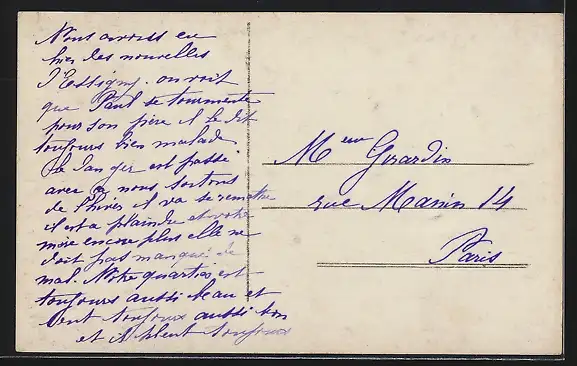 Nous avons eu
hier des nouvelles
d'Essigny. on voit
que Paul se tourmente
pour son père il le dit
toujours bien malade
le danger est passé
avec nous sortons
de l'hiver il va se remettre
il est a plaindre et votre
mère encore plus elle ne
doit pas manqué de
mal. Notre quartier est
toujours aussi beau et
sent toujours aussi bon
et il pleut toujours
Meur Girardin
rue Manin 14
Paris